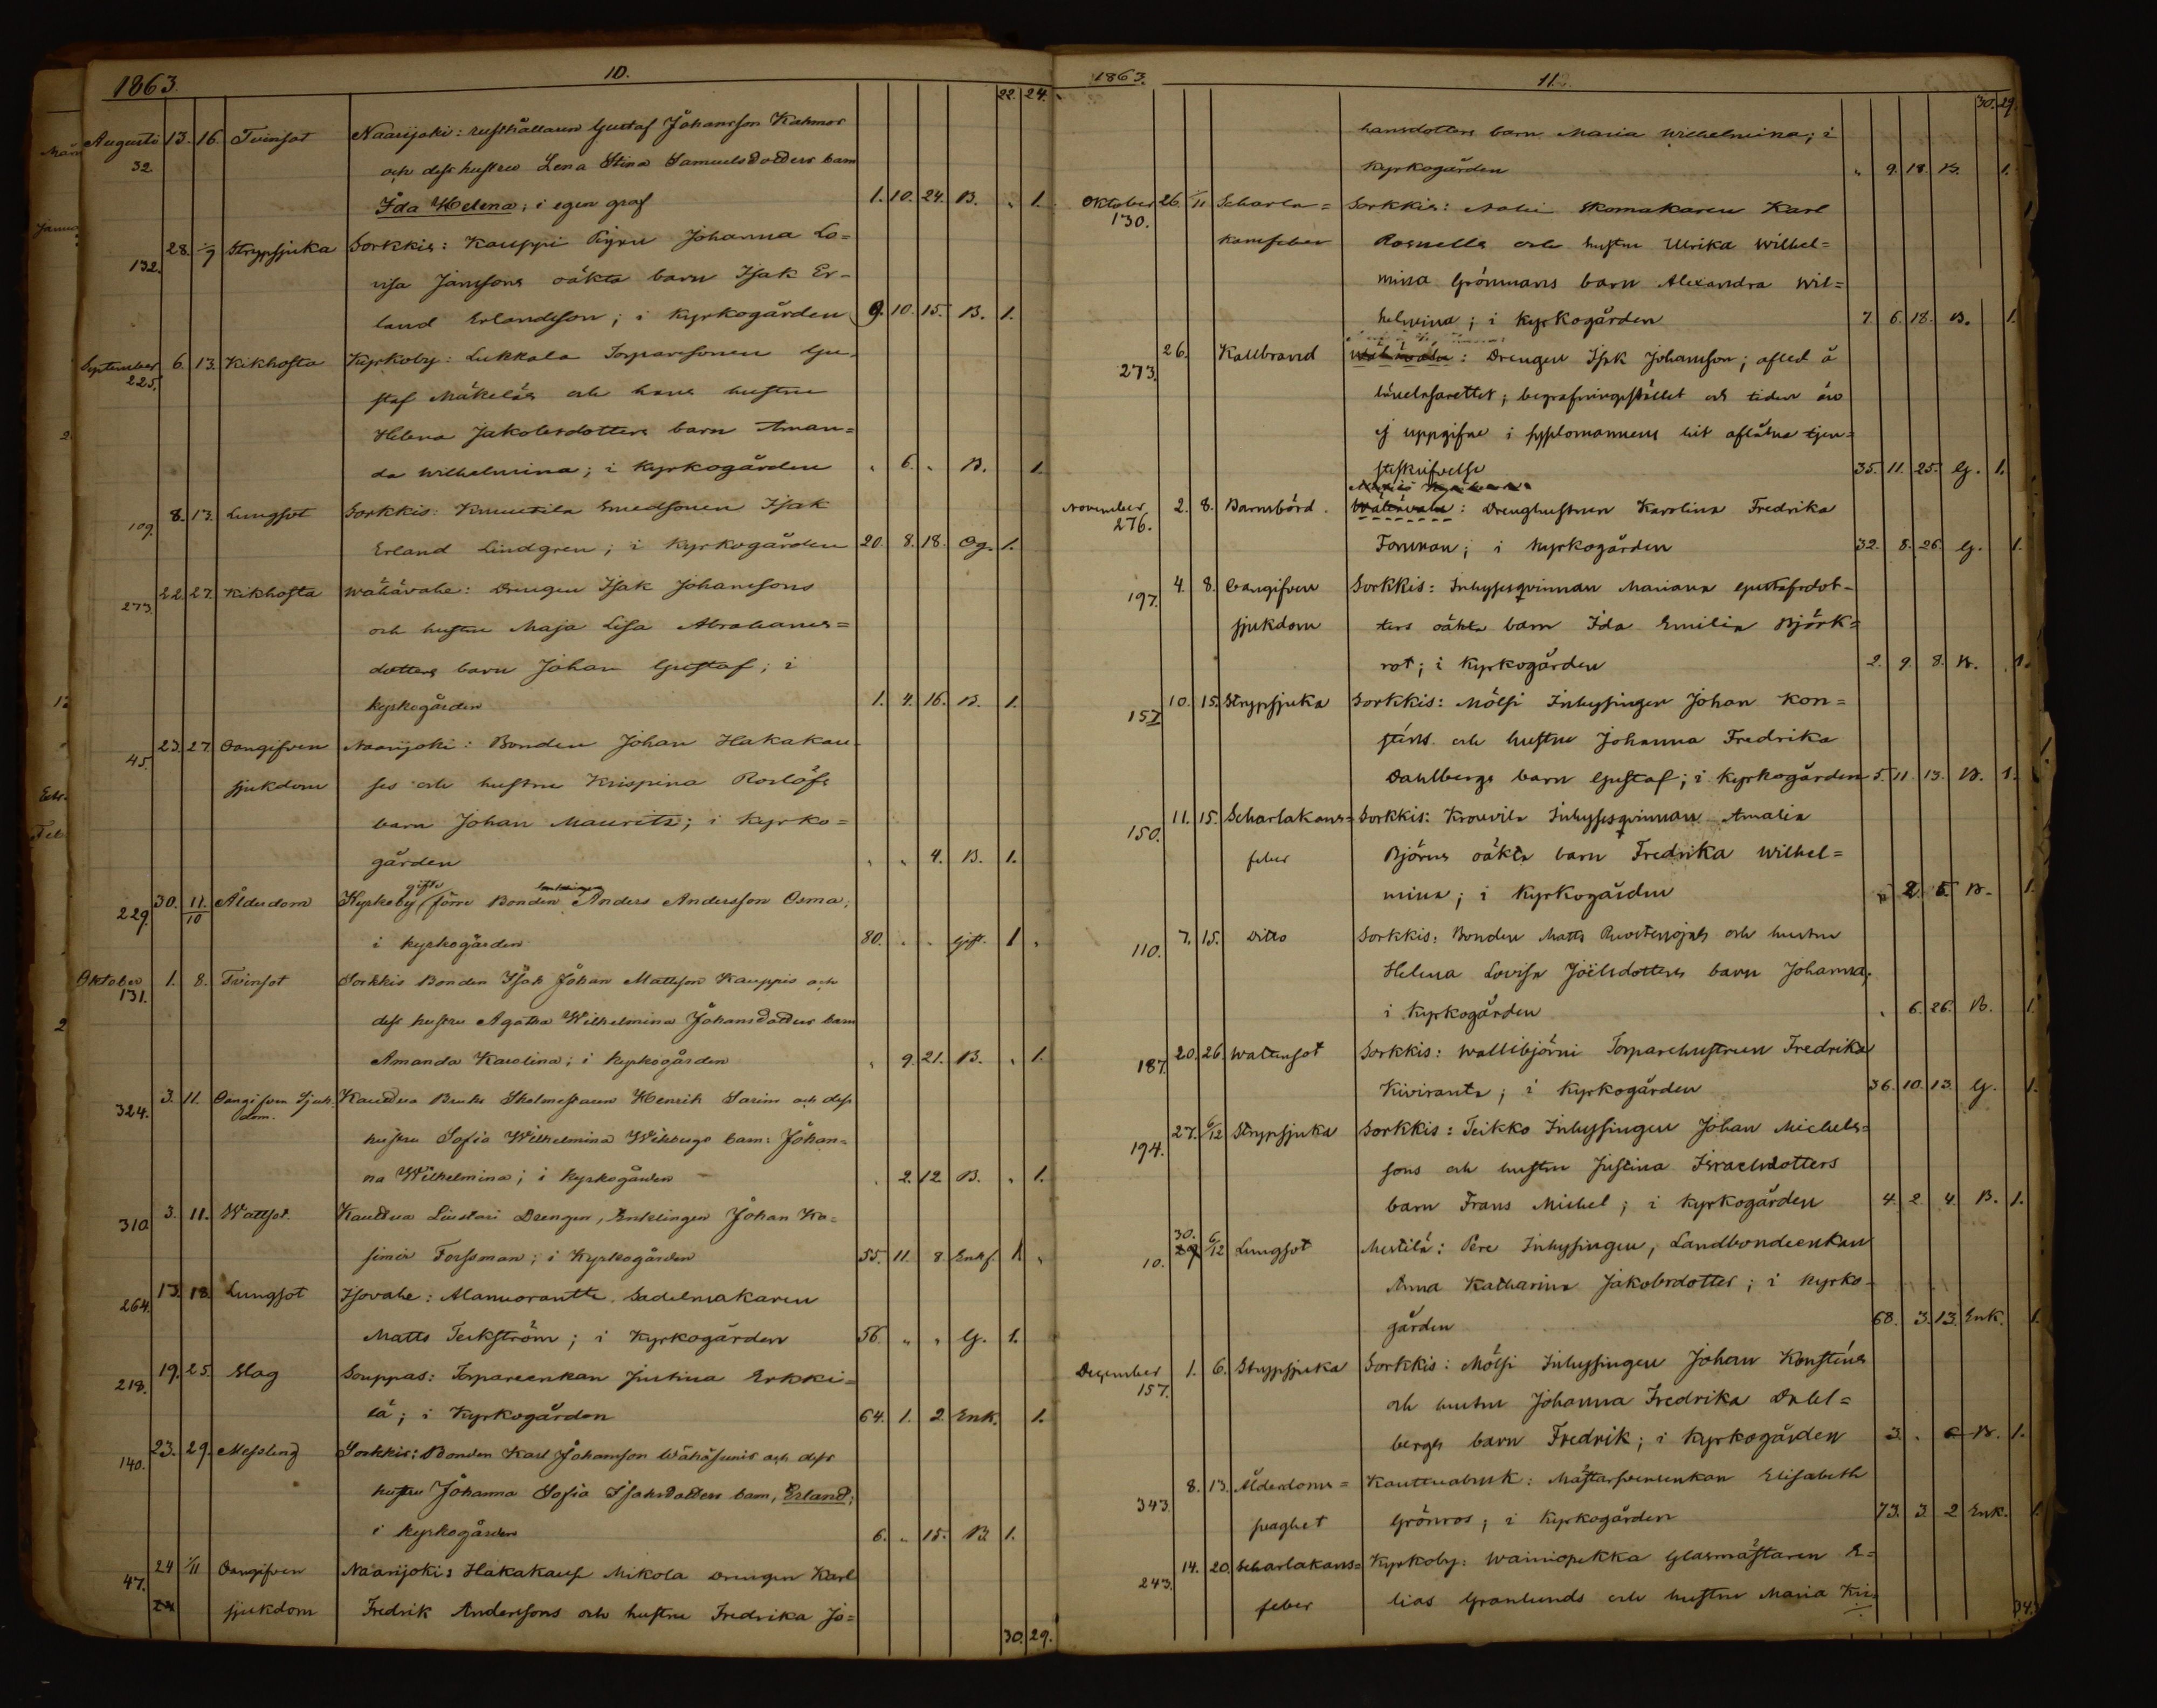 1863. 10.
22. 24.
Augusti 13. 16. Tvinsot Naarijoki: rusthållaren Gustaf Johansson Kahmos
32. och dess hustru Lena Stina Samuelsdotters barn
Ida Helena; i egen graf 1. 10. 24. B. „ 1.
132. 28. 1/9 Strypsjuka Sorkkis: Kauppi Pigan Johanna Lo=
visa Janssons oäkta barn Isak Er-
land Erlandsson; i Kyrkogården 9. 10. 15. B. 1.
September 6. 13. Kikhosta Kyrkoby: Lukkala Torparesonen Gu-
225. staf Mäkeläs och hans hustru
Helena Jakobsdotters barn Aman=
da Wilhelmina; i Kyrkogården „ 6. „ B. 1.
109. 8. 13. Lungsot Sorkkis: Knuutila Smedsonen Isak
Erland Lindgren; i Kyrkogården 20. 8. 18. Og. 1.
273. 22. 27. Kikhosta Wähävahe: Drengen Isak Johanssons
och hustru Maja Lisa Abrahams=
dotters barn Johan Gustaf; i
kyrkogården 1. 4. 16. B. 1.
45. 23. 27. Oangifven Naarijoki: Bonden Johan Hakakau
sjukdom ses och hustru Krispina Roslöfs
barn Johan Mauritz; i Kyrko=
gården „ „ 4. B. 1.
gifte
229. 30. 11/10 Ålderdom Kyrkoby förre Bonden Anders Andersson Osma;
i kyrkogården 80. „ „ Gift. 1 „
Oktober 1. 8. Tvinsot Sorkkis Bonden Isak Johan Mattsson Kauppis och
131. dess hustru Agatha Wilhelmina Johansdotters barn
Amanda Karolina; i kyrkogården „ 9. 21. B. „ 1.
324. 3. 11. Oangifven Sjuk- Kauttua Bruks Skolmestaren Henrik Sarins och dess
dom. hustru Sofia Wilhelmina Wikbergs barn: Johan=
na Wilhelmina; i kyrkogården „ 2. 12 B. „ 1.
310. 3. 11. Wattsot. Kauttua Livstari Drengen, Enklingen Johan Ka=
simir Forssman; i Kyrkogården 55. 11. 8. Enkf. 1. „
264. 13. 18. Lungsot Isovahe: Alanuorantti Sadelmakaren
Matts Terkström; i Kyrkogården 56. „ „ G. 1.
218. 19. 25. Slag Souppas: Torpareenkan Justina Erkki=
lä; i Kyrkogården 64. 1. 2. Enk. 1.
140. 23. 29. Messling Sorkkis: Bonden Karl Johansson Wähäsunis och dess
hustru Johanna Sofia Isaksdotters barn, Erland;
i kyrkogården 6. „ 15. B. 1.
47. 24 1/11 Oangifven Naarijoki: Hakakaus Mikola drengen Karl
sjukdom Fredrik Anderssons och hustru Fredrika Jo=
30. 29.
1863. 11.
30. 29.
hansdotters barn Maria Wilhelmina; i
Kyrkogården „ 9. 18. B. 1.
Oktober 26. 1/11 Scharla= Sorkkis: skomakaren Karl
130. kansfeber Rosnells och hustru Ulrika Wilhel=
mina Grönmans barn Alexandra Wil=
helmina; i Kyrkogården 7. 6. 18. B. 1.
273. 26. Kallbrand Wähävahe: Drengen Isak Johansson; afled å
länelasarettet; begrafningsstället och tiden äro
ej uppgifne i sysslomannens hit aflåtna tjen=
steskrifvelse 35. 11. 25. G. 1.
November 2. 8. Barnsbörd. Wähävahe: Drenghustrun Karolina Fredrika
276. Forsman; i Kyrkogården 32. 8. 26. G. 1.
197. 4. 8. Oangifven Sorkkis: Inhysesqvinnan Mariana Gustafsdot-
sjukdom ters oäkta barn Ida Emilia Björk=
rot; i Kyrkogården 2. 9. 8. B. 1.
157. 10. 15. Strypsjuka Sorkkis: Mölsi Inhysingen Johan Kon=
sténs och hustru Johanna Fredrika
Dahlbergs barn Gustaf; i Kyrkogården 5. 11. 13. B. 1.
150. 11. 15. Scharlakans= Sorkkis: Krouvila Inhysesqvinnan Amalia
feber Björns oäkta barn Fredrika Wilhel=
mina; i Kyrkogården „ 2. 5. B. 1.
110. 7. 15. Ditto Sorkkis: Bonden Matts och hustru
Helena Lovisa Joëlsdotters barn Johanna;
i Kyrkogården „ 6. 26. B. 1.
187. 20. 26. Wattensot Sorkkis: Wallibjörni Torparehustrun Fredrika
Kiviranta; i Kyrkogården 36. 10. 13. G. 1.
194. 27. 6/12 Strypsjuka Sorkkis: Teikko Inhysingen Johan Michels=
sons och hustru Justina Israelsdotters
barn Frans Michel; i Kyrkogården 4. 2. 4. B. 1.
10. 30. 6/12 Lungsot Mestilä: Pere Inhysingen, Landbondeenkan
Anna Katharina Jakobsdotter; i Kyrko-
gården 68. 3. 13. Enk. 1.
December 1. 6. Strypsjuka Sorkkis: Mölsi Inhysingen Johan Konsténs
157. och hustru Johanna Fredrika Dahl=
bergs barn Fredrik; i Kyrkogården 3. „ 6 B. 1.
343. 8. 13. Ålderdoms= Kauttuabruk: Mästarsvensenkan Elisabeth
svaghet Grönros; i Kyrkogården 73. 3. 2 Enk. 1.
243. 14. 20. Scharlakans= Kyrkoby: Wainiopekka Glasmästaren E=
feber lias Granlunds och hustru Maria Kri=
34.